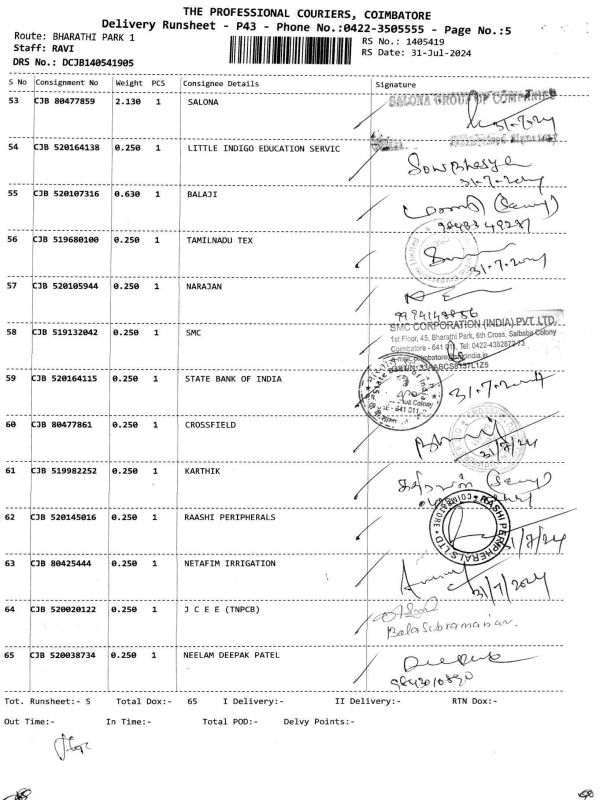 THE PROFESSIONAL COURIERS, COIMBATORE
Delivery Runsheet - P43 - Phone No.:0422-3505555 - Page No.:5
Route: BHARATHI PARK 1
RS No.: 1405419
Staff: RAVI
RS Date: 31-Jul-2024
DRS No.: DCJB140541905
S No Consignment No Weight PCS Consignee Details Signature
53 CJB 80477859 2.130 1 SALONA
SALONA GROUP OF COMPANIES
31.7.2024
Authorised Signatory
54 CJB 520164138 0.250 1 LITTLE INDIGO EDUCATION SERVIC
31.7.2024
55 CJB 520107316 0.630 1 BALAJI
56 CJB 519680100 0.250 1 TAMILNADU TEX
31.7.2024
57 CJB 520105944 0.250 1 NARAJAN
58 CJB 519132042 0.250 1 SMC
SMC CORPORATION (INDIA) PVT. LTD.
1st Floor, 45, Bharathi Park, 6th Cross, Saibaba Colony
Coimbatore - 641 011, Tel: 0422-4382872-73
59 CJB 520164115 0.250 1 STATE BANK OF INDIA
State Bank of India
641 011
31.7.2024
60 CJB 80477861 0.250 1 CROSSFIELD
31/7/24
61 CJB 519982252 0.250 1 KARTHIK
62 CJB 520145016 0.250 1 RAASHI PERIPHERALS
RASHI PERIPHERALS LTD
COIMBATORE
31/7/24
63 CJB 80425444 0.250 1 NETAFIM IRRIGATION
31/7/2024
64 CJB 520020122 0.250 1 J C E E (TNPCB)
Balasubramanian.
65 CJB 520038734 0.250 1 NEELAM DEEPAK PATEL
Deepak
9843010890
Tot. Runsheet:- 5 Total Dox:- 65 I Delivery:- II Delivery:- RTN Dox:-
Out Time:- In Time:- Total POD:- Delvy Points:-